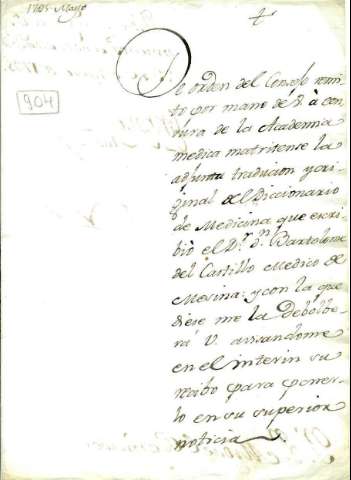 1785 Mayo
904
De orden del Consejo remi-
to por mano de V. à cen-
sura de la Academia
medica matritense la
adjunta traducion y ori-
ginal del Diccionario
de Medicina que escri-
biò el D.r d.n Bartolome
del Castillo Medico de
Mesina: y con la que
diese me la debolbe-
rà V. avisandome
en el interin su
recibo para poner-
lo en su superior
noticia.